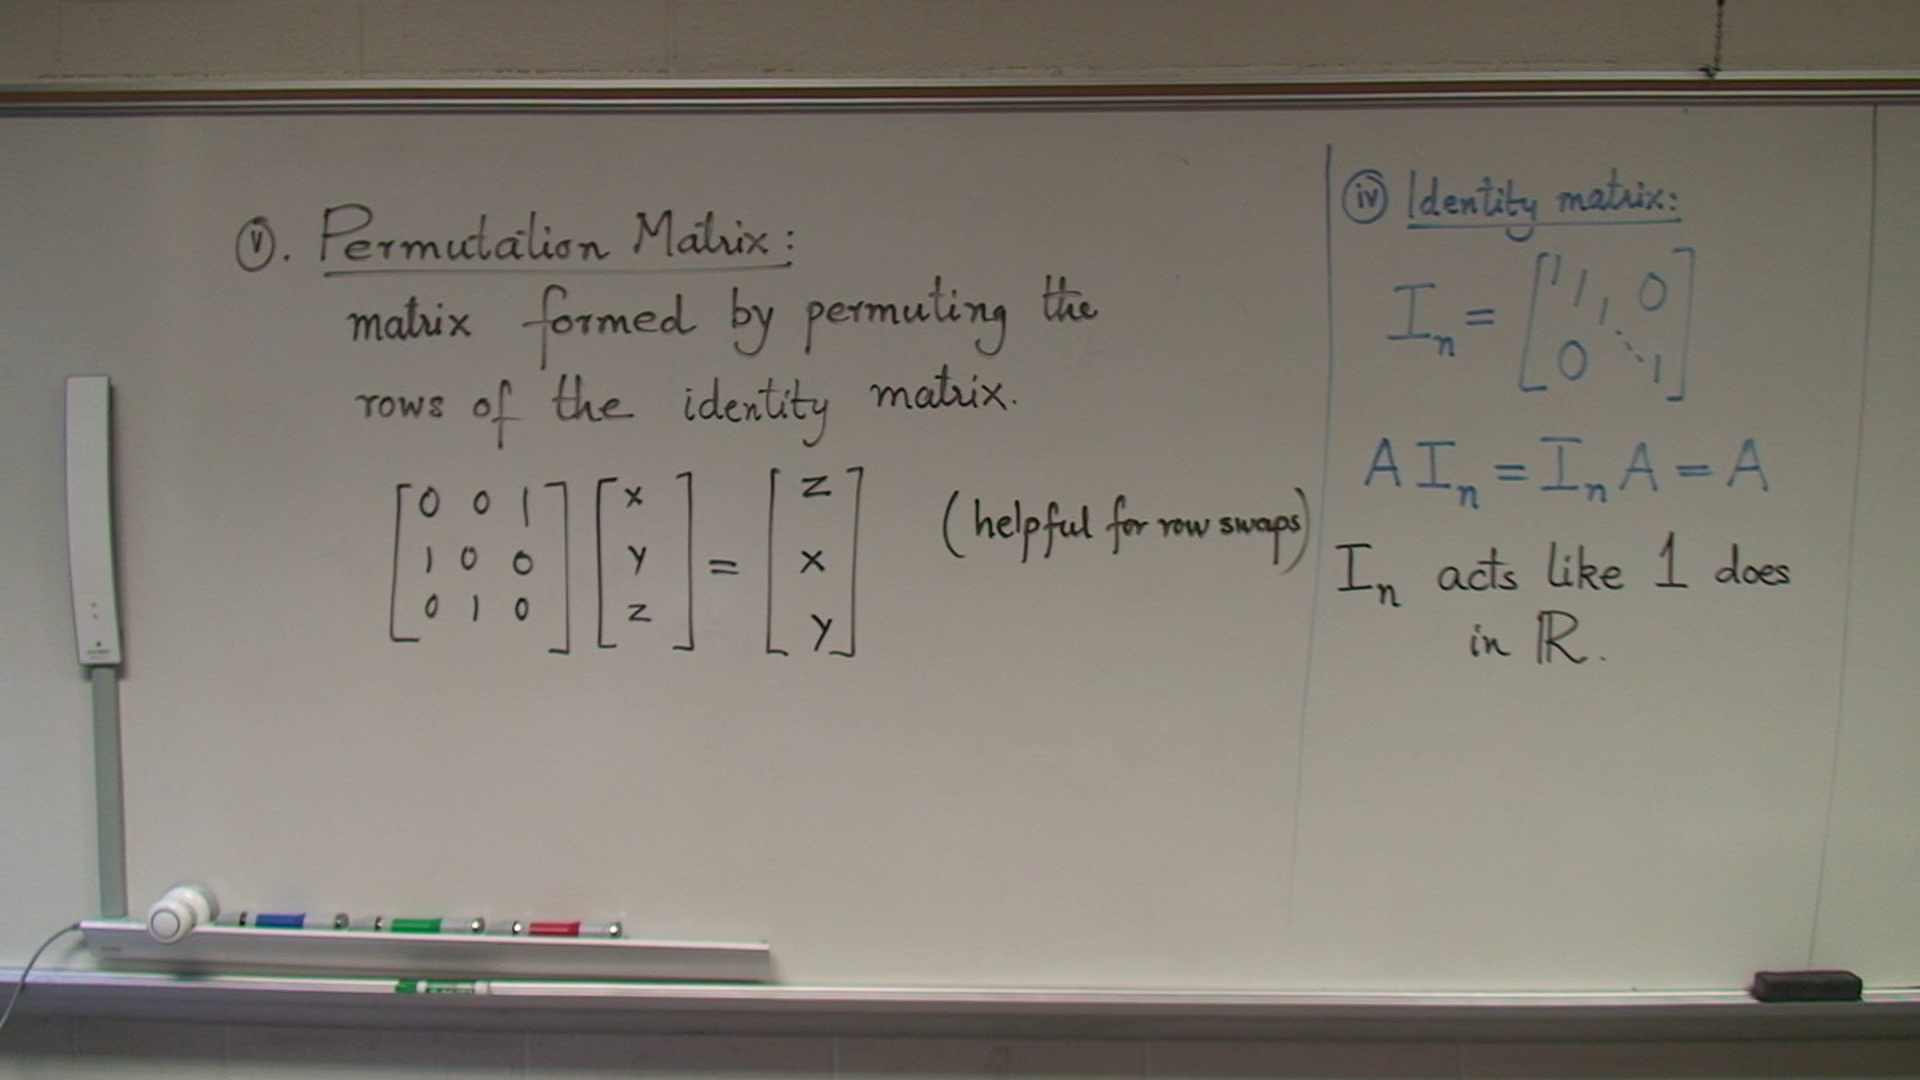 ⓥ. Permutation Matrix:
matrix formed by permuting the
rows of the identity matrix.
[0 0 1] [x] = [z]
[1 0 0] [y] [x]
[0 1 0] [z] [y]
(helpful for row swaps)
ⓘⓥ Identity matrix:
Iₙ = [1 1 1 0
0 ⋱ 1]
A Iₙ = Iₙ A = A
Iₙ acts like 1 does
in ℝ.